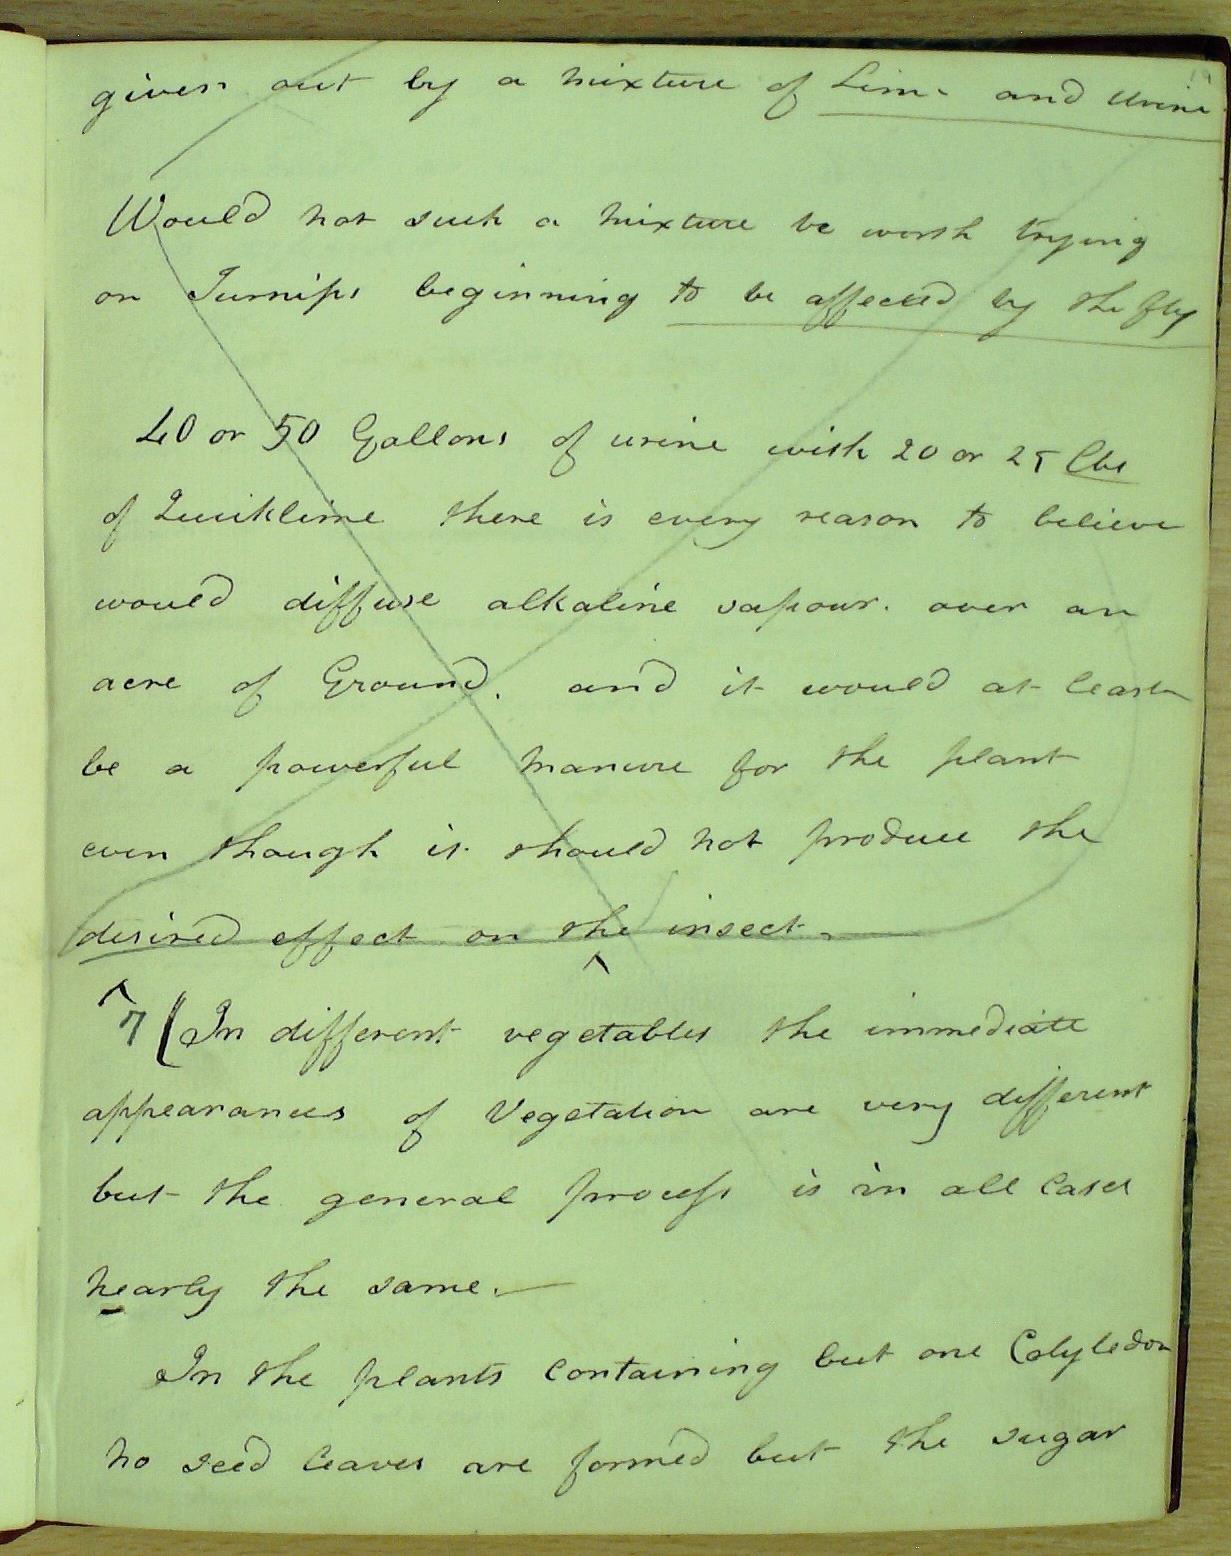 given out by a mixture of Lime and Urine
Would not such a mixture be worth trying
on Turnips beginning to be affected by the fly
40 or 50 Gallons of urine with 20 or 25 lbs
of Quicklime there is every reason to believe
would diffuse alkaline vapour. over an
acre of Ground. and it would at least
be a powerful manure for the plant
even though it should not produce the
desired effect on the insect. —
7 (In different vegetables the immediate
appearances of Vegetation are very different
but the general process is in all cases
nearly the same. —
In the plants containing but one Cotyledon
no seed leaves are formed but the sugar